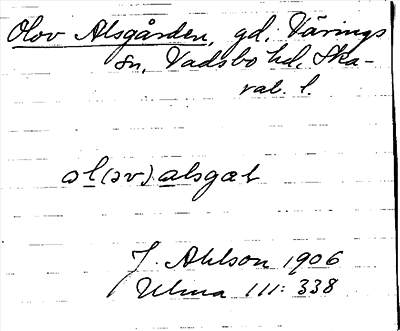 Olov Alsgården, gd, Värings
sn, Vadsbo hd, Ska-
rab. l.
əl(əv) alsgət
J. Ahlson 1906
Ulma 111: 338